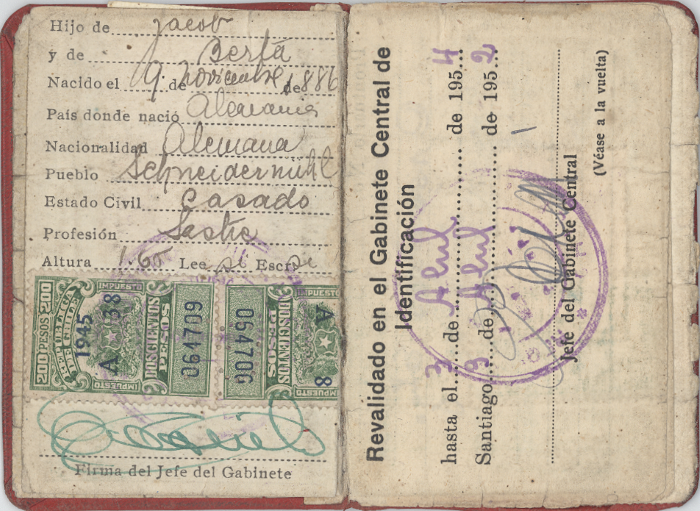 Hijo de Jacob
y de Berta
Nacido el 9 de noviembre de 1886
País donde nació Alemania
Nacionalidad Alemana
Pueblo Schneidemühl
Estado Civil Casado
Profesión Sastre
Altura 1.65 Lee si Escribe si
200 PESOS 200
REPUBLICA DE CHILE
1945
A 38
IMPUESTO
DOSCIENTOS PESOS
064709
064700
DOSCIENTOS PESOS
IMPUESTO
A
8
Firma del Jefe del Gabinete
Revalidado en el Gabinete Central de
Identificación
hasta el 3 de Abril de 1954
Santiago 9 de Abril de 1952
Jefe del Gabinete Central
(Véase a la vuelta)